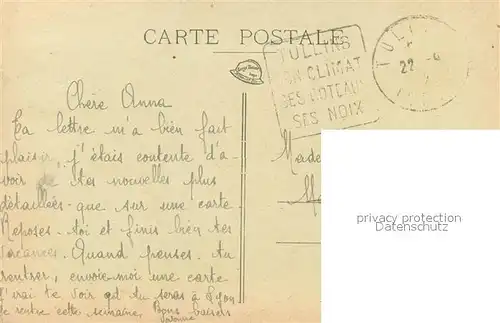 CARTE POSTALE
TULLINS
SON CLIMAT
SES COTEAUX
SES NOIX
TUL
22
Chère Anna
Ta lettre m'a bien fait
plaisir, j'étais contente d'a-
voir de tes nouvelles plus
détaillées que sur une carte.
Reposes-toi et finis bien tes
vacances. Quand penses-tu
rentrer, envoie-moi une carte
j'irai te voir qd tu seras à Lyon
je rentre cette semaine, Bons baisers
Made
privacy protection
Datenschutz